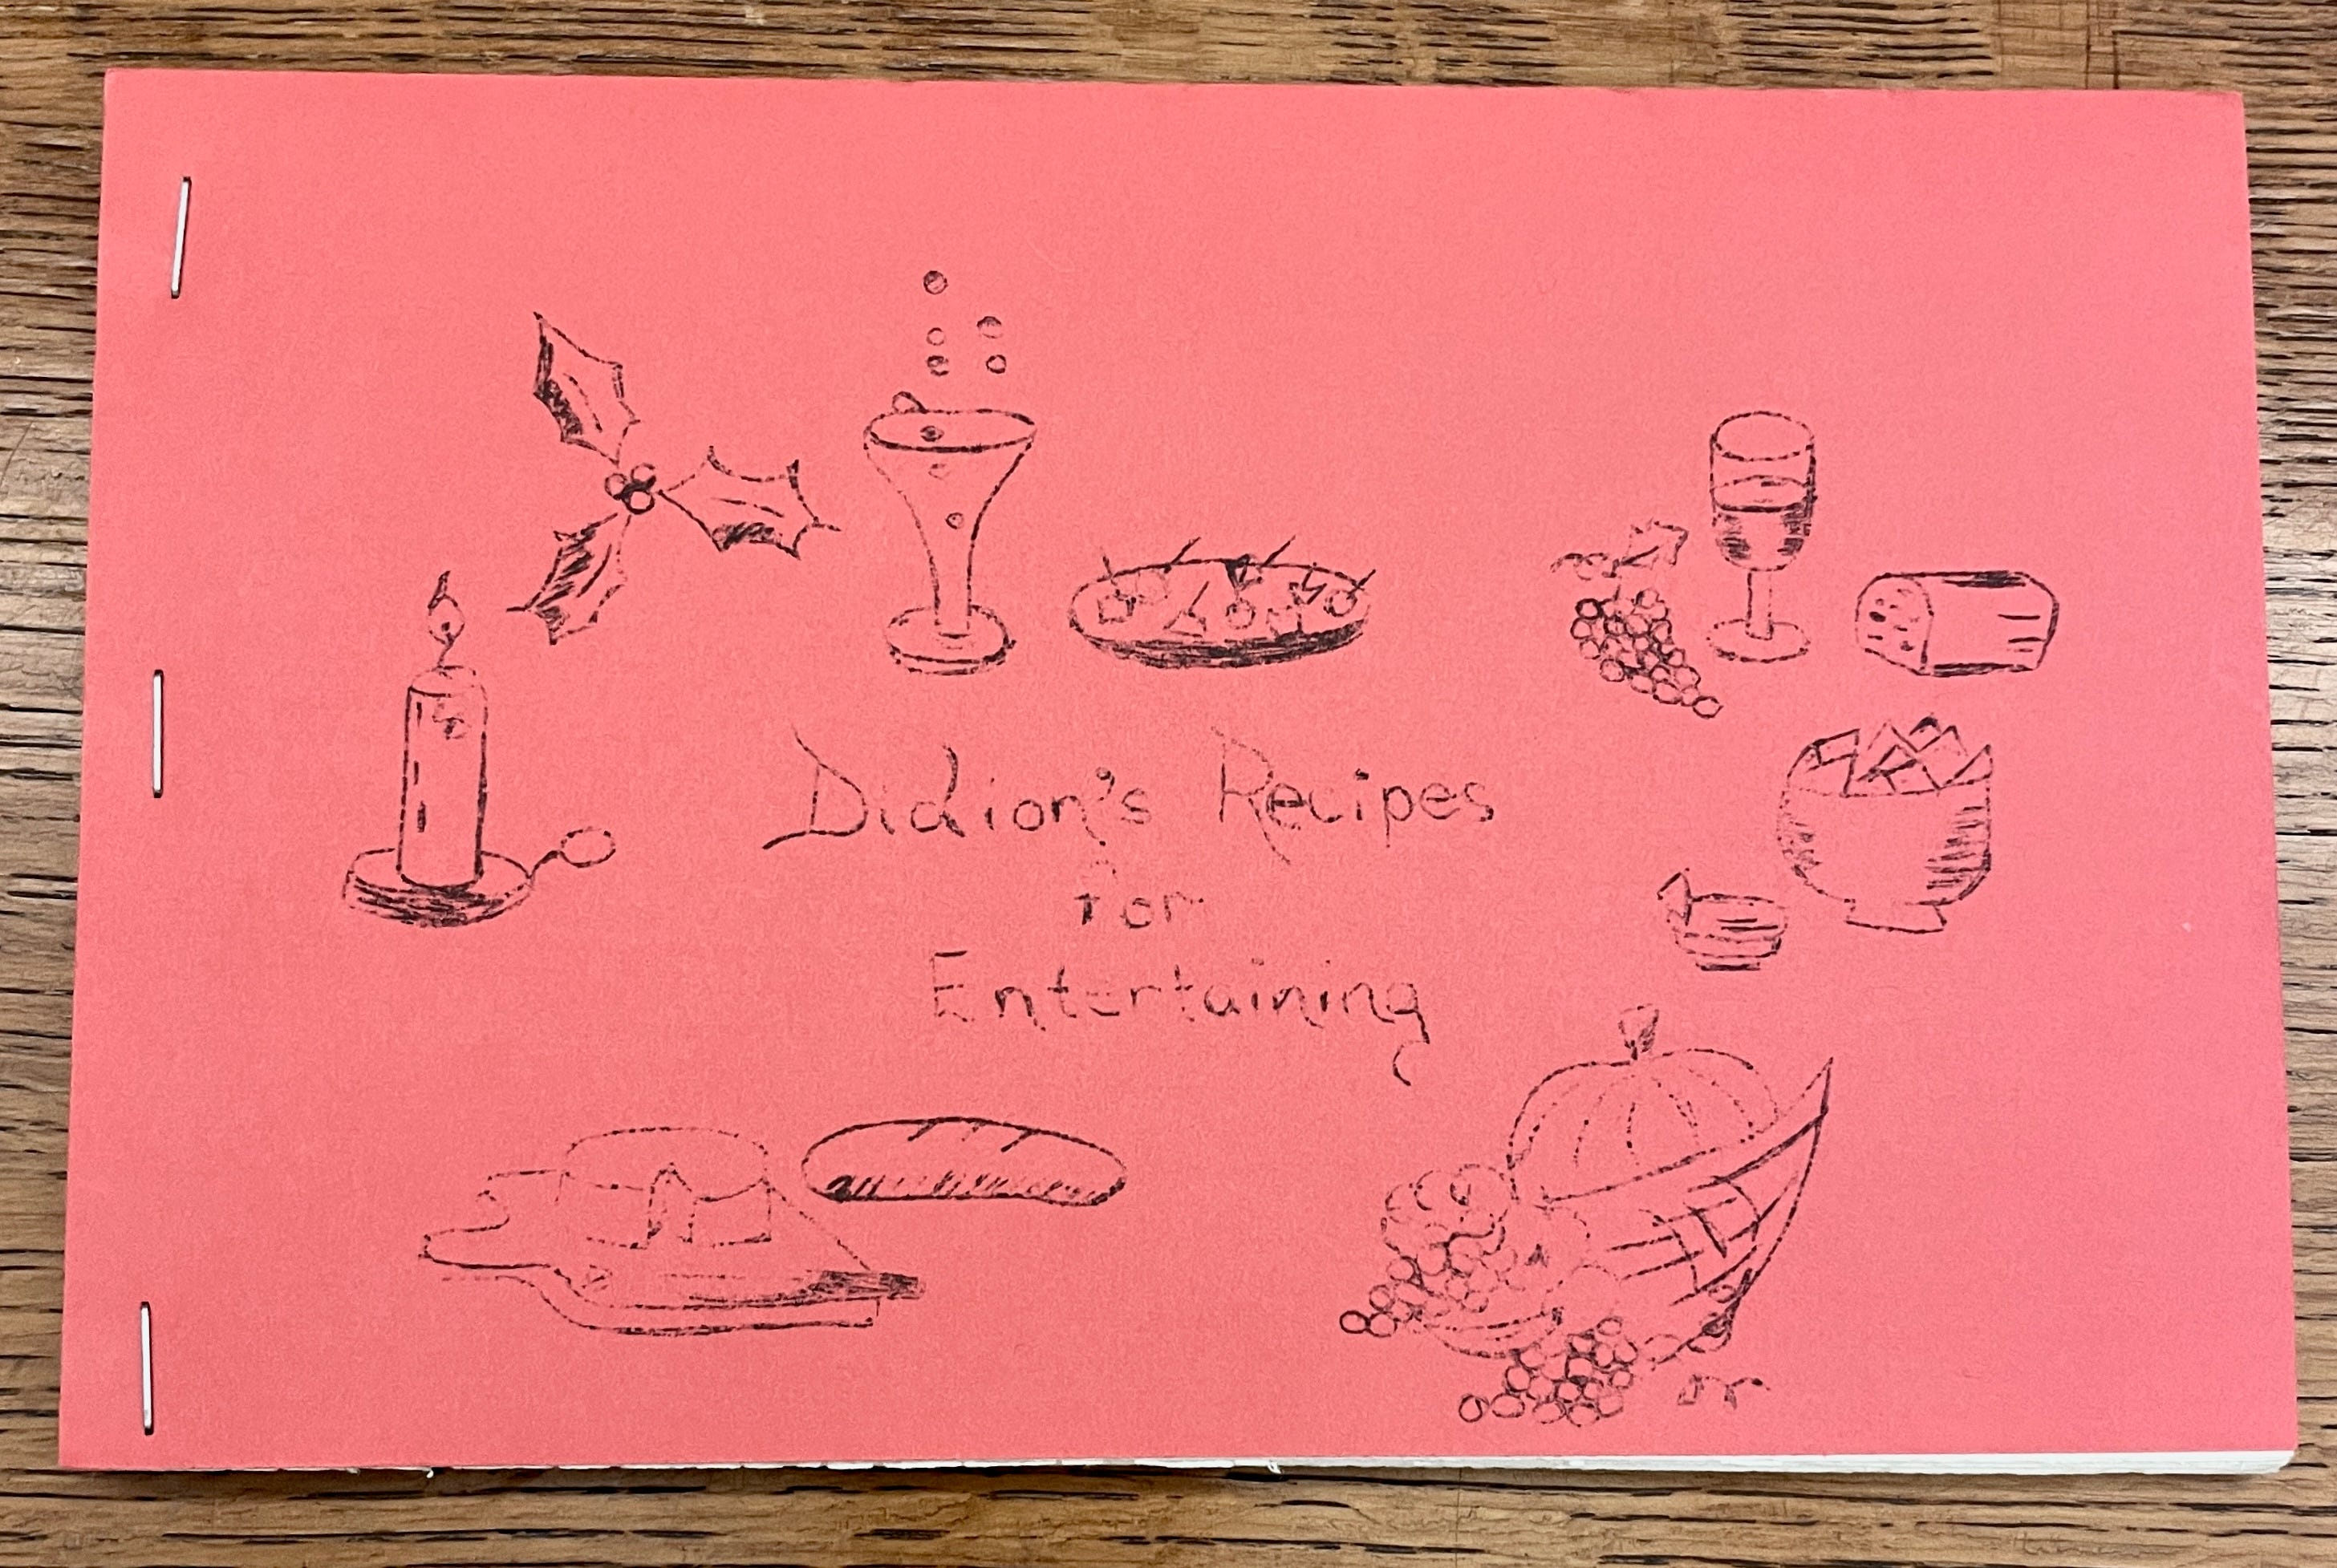 Didion's Recipes
for
Entertaining